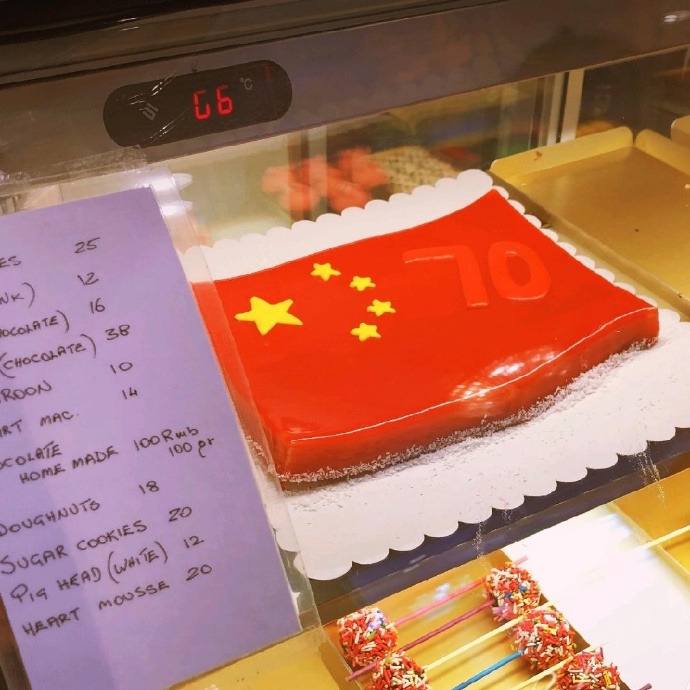 06 °C
70
ES 25
NK) 12
HOCOLATE) 16
(CHOCOLATE) 38
ROON 10
ART MAC. 14
OCOLATE
HOME MADE 100 Rmb
100 gr
DOUGHNUTS 18
SUGAR COOKIES 20
PIG HEAD (WHITE) 12
HEART MOUSSE 20